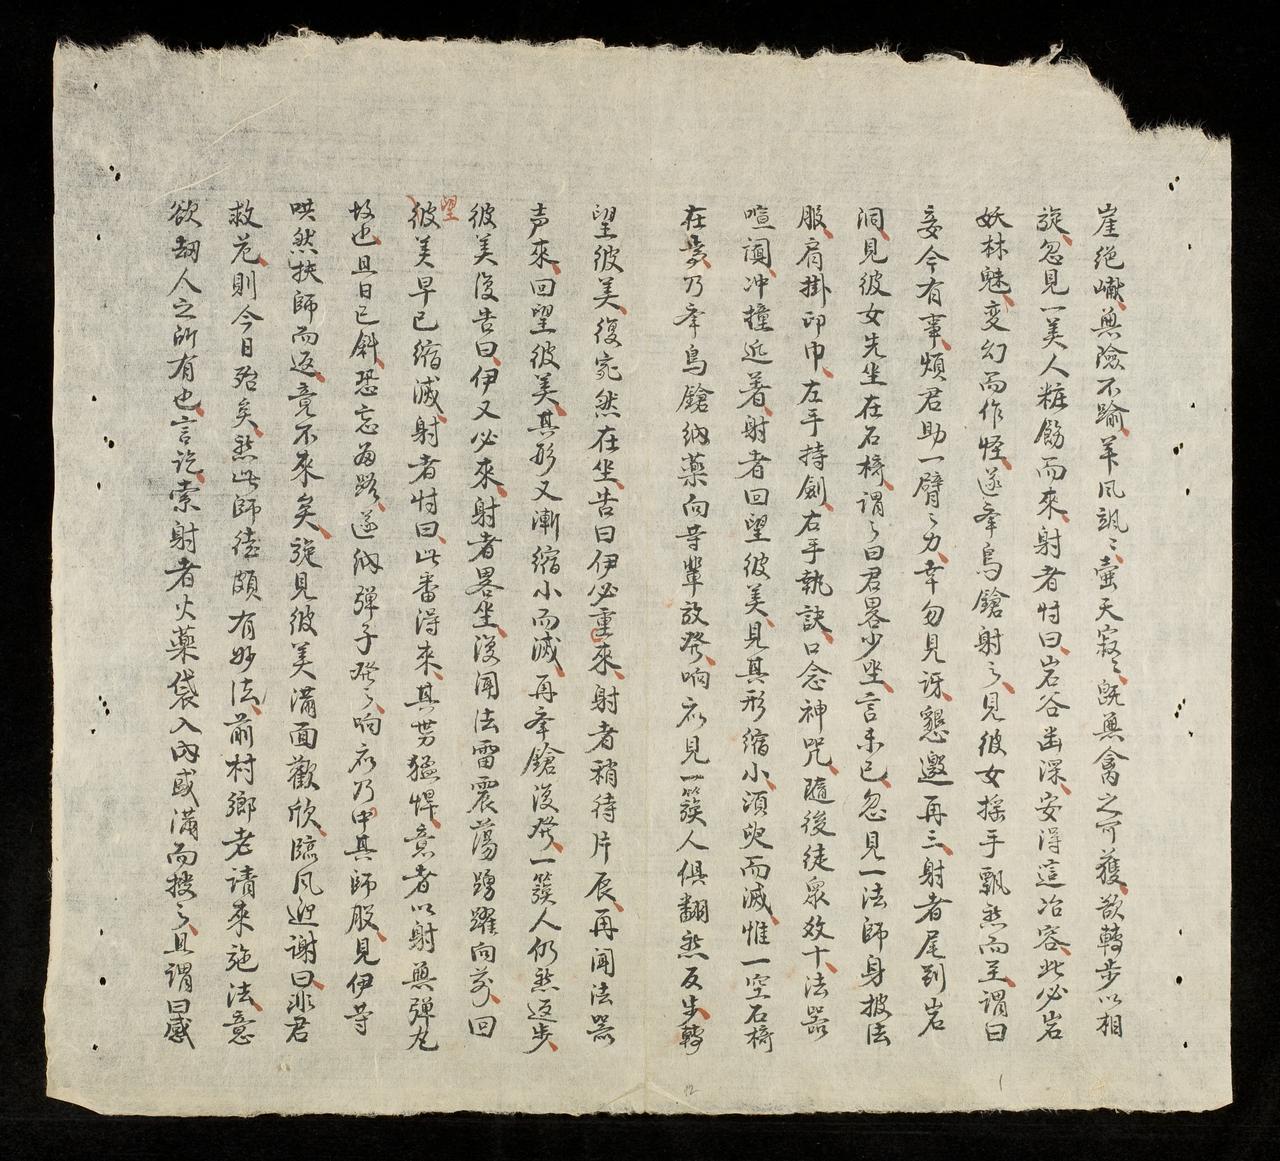 崖绝巘無險不踰羊风颯〻壺天寂〻既無禽之可獲欲轉步以相
旋忽見一美人粧餙而來射者忖曰岩谷幽深安得這冶容此必岩
妖林魅变幻而作怪遂牽鳥鎗射之見彼女摇手飘然而至謂曰
妾今有事煩君助一臂之力幸勿見讶懇邀再三射者尾到岩
洞見彼女先坐在石椅謂之曰君畧少坐言未已忽見一法師身披法
服肩掛印巾左手持劍右手執訣口念神咒隨後徒衆效十法器
喧闐冲撞近著射者回望彼美見其形縮小須臾而滅惟一空石椅
在乃牽鳥鎗納藥向等輩放發响衣見一簇人俱翻然反步轉
望彼美復宛然在坐告曰伊必重來射者稍待片辰再闻法器
声來回望彼美其形又漸縮小而滅再牽鎗復發一簇人仍然返步
彼美復告曰伊又必來射者畧坐復闻法雷震蕩踴躍向前回
望
彼美早已縮滅射者忖曰此番得來其势猛悍意者以射無彈丸
故也且日已斜恐忘歸路遂納弹子發之响衣乃中其師股見伊等
哄然扶師而返竟不來矣旋見彼美滿面歡欣臨风迎谢曰非君
救危則今日殆矣然此師徒頗有妙法前村鄉老请來施法意
欲刼人之所有也言讫索射者火藥袋入內咸滿而授之且謂曰感